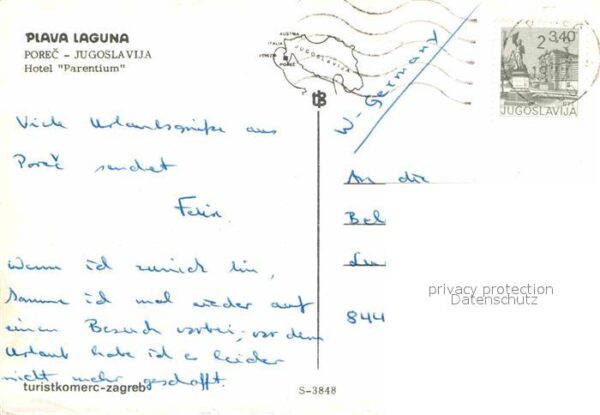 PLAVA LAGUNA
POREČ - JUGOSLAVIJA
Hotel "Parentium"
AUSTRIA
ITALIA
JUGOSLAVIJA
VENEZIA
POREČ
tB
W-Germany
2 3,40
JUGOSLAVIJA
Viele Urlaubsgrüße aus
Poreč sendet
Felix.
Wenn ich zurück bin,
komme ich mal wieder auf
einen Besuch vorbei; vor dem
Urlaub habe ich es leider
nicht mehr geschafft.
An die
Bel
844
privacy protection
Datenschutz
turistkomerc-zagreb
S-3848